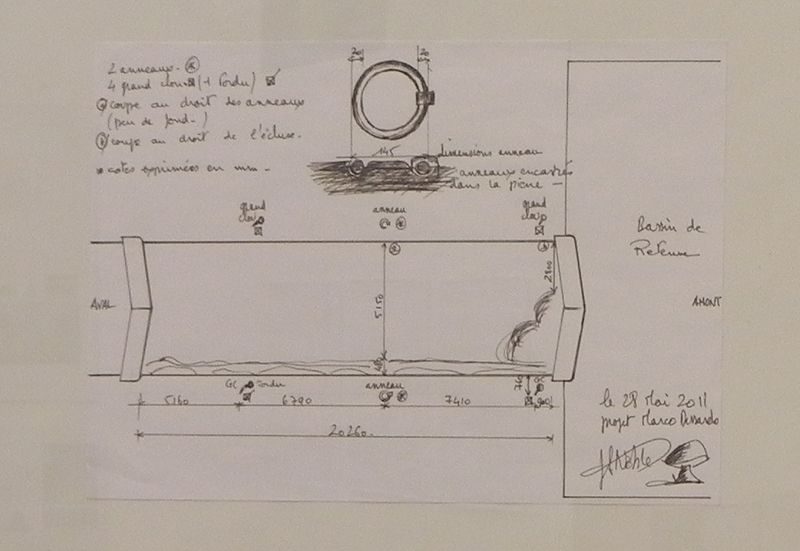 2 anneaux.
4 grand clous (1 Tordu)
a coupe au droit des anneaux
(peu de fond.)
b coupe au droit de l'écluse.
* cotes exprimées en mm -
20
20
145
dimensions anneau
anneaux encastrés
dans la pierre -
grand
clou
anneau
grand
clou
Bassin de
Retenue
AVAL
AMONT
5150
2800
GC Tordu
anneau
760
GC
5160
6790
7410
20260.
le 28 Mai 2011
projet Marco